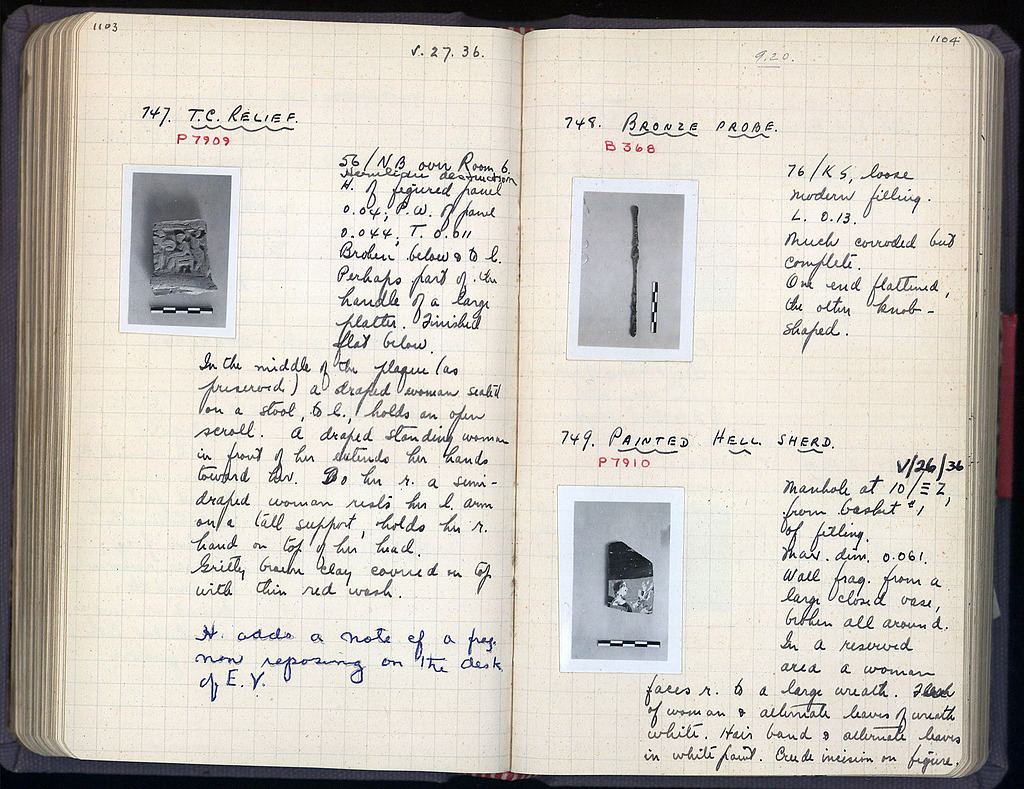 1103
V. 27. 36.
747. T.C. RELIEF.
P 7909
56/NB over Room 6.
Herulian destruction
H. of figured panel
0.04; P.W. of panel
0.044; T. 0.011
Broken below & to l.
Perhaps part of the
handle of a large
platter. Finished
flat below.
In the middle of the plaque (as
preserved) a draped woman seated
on a stool, to l., holds an open
scroll. A draped standing woman
in front of her extends her hands
toward her. To her r. a semi-
draped woman rests her l. arm
on a tall support, holds her r.
hand on top of her head.
Gritty brown clay covered on top
with thin red wash.
H. adds a note of a frag.
now reposing on the desk
of E.V.
1104
9.20.
748. BRONZE PROBE.
B 368
76/KS, loose
modern filling.
L. 0.13.
Much corroded but
complete.
One end flattened,
the other knob-
shaped.
749. PAINTED HELL. SHERD.
P7910
V/26/36
Manhole at 10/ΞZ,
from basket #1
of filling.
Max. dim. 0.061.
Wall frag. from a
large closed vase,
broken all around.
In a reserved
area a woman
faces r. to a large wreath. Flesh
of woman & alternate leaves of wreath
white. Hair band & alternate leaves
in white paint. Crude incision on figure.